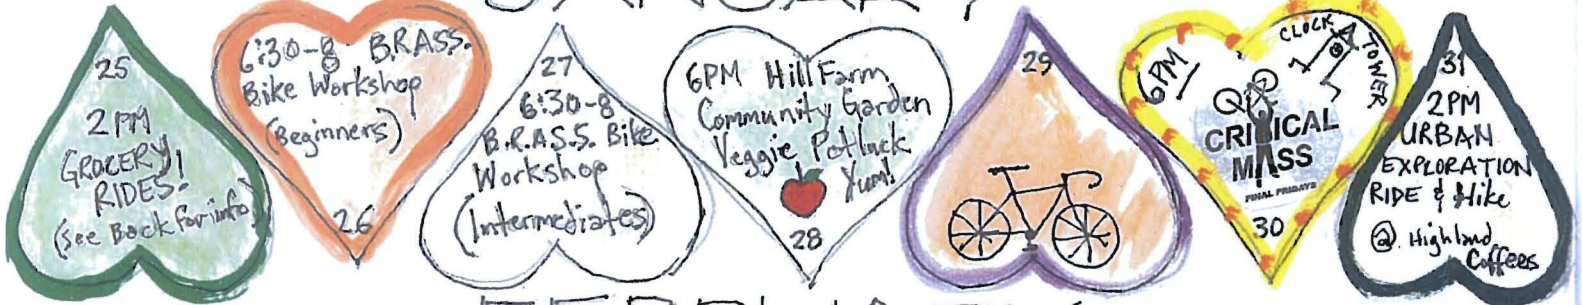 JANUARY
25
2PM
GROCERY
RIDES!
(see Back for info)
6:30-8 B.R.A.S.S.
Bike Workshop
(Beginners)
26
27
6:30-8
B.R.A.S.S. Bike
Workshop
(Intermediates)
6PM Hill Farm
Community Garden
Veggie Potluck
Yum!
28
29
6PM
CLOCK
TOWER
CRITICAL
MASS
FINAL FRIDAYS
30
31
2PM
URBAN
EXPLORATION
RIDE & Hike
@ Highland
Coffees